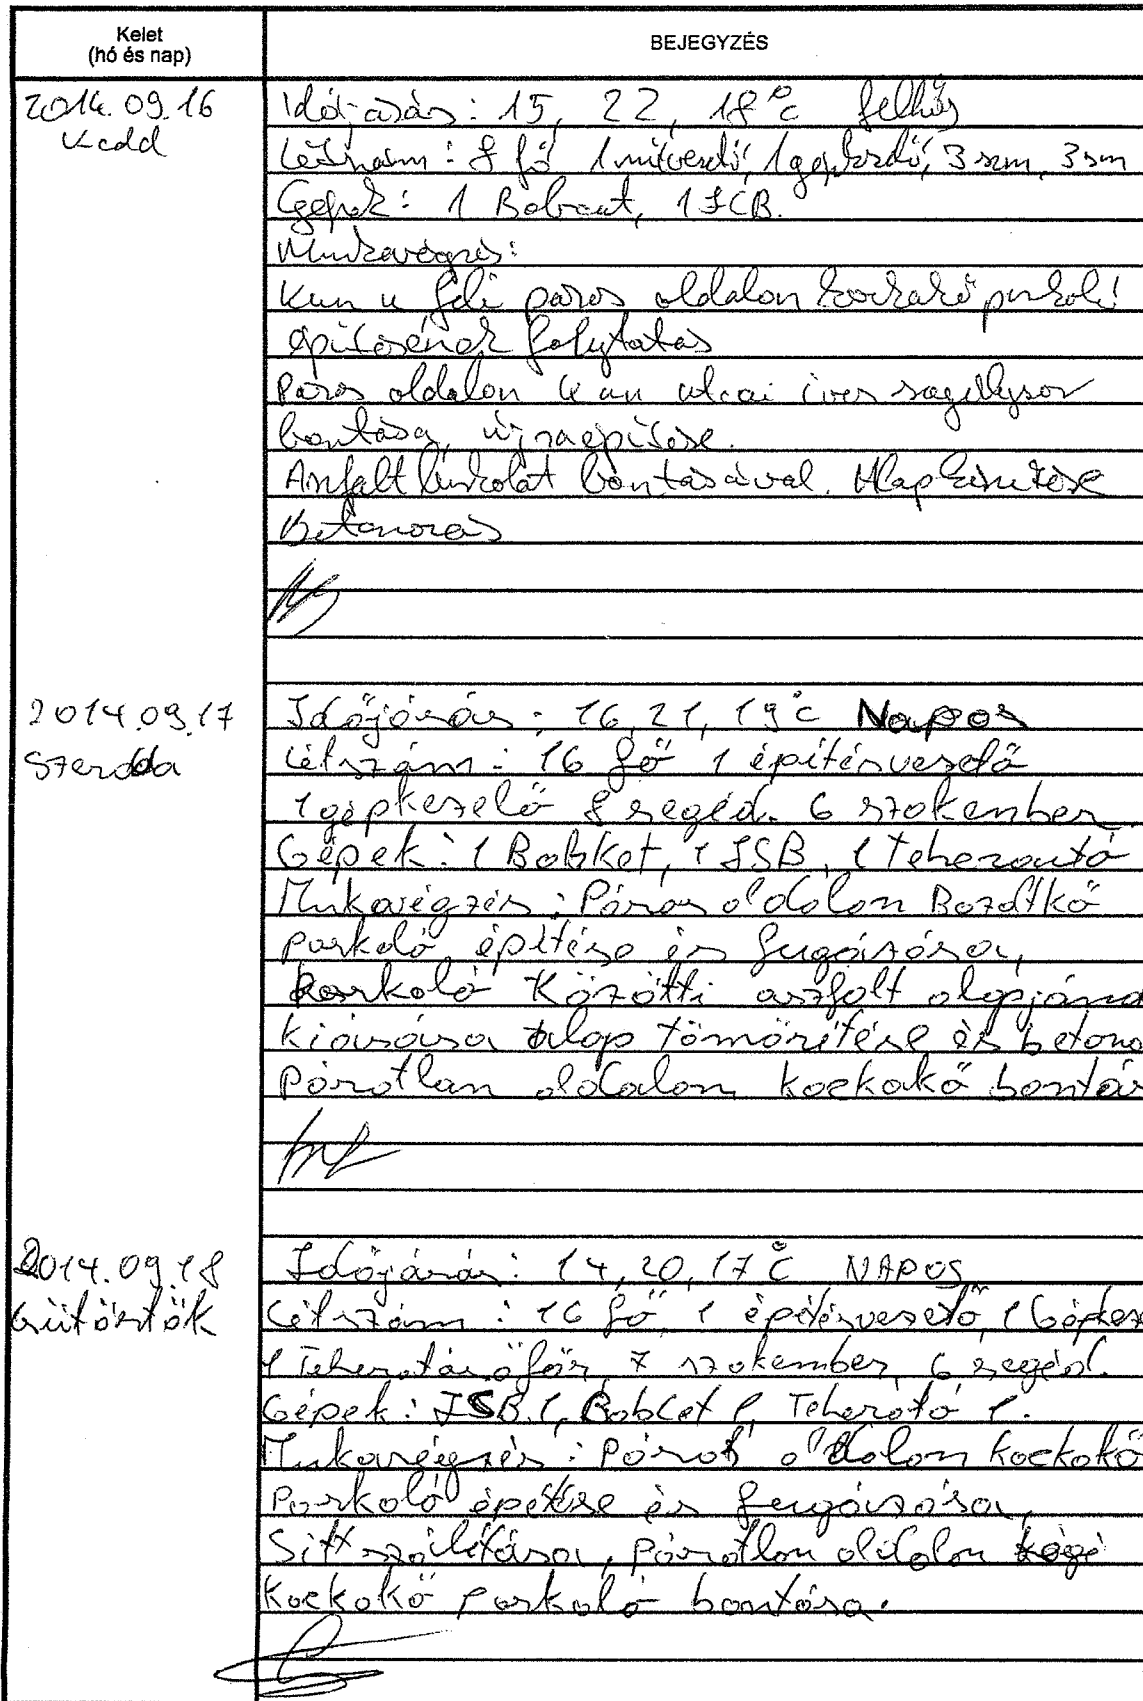 Kelet
(hó és nap)
BEJEGYZÉS
2014.09.16
Kedd
Időjárás: 15, 22, 18°C felhős
Létszám: 8 fő 1 művezető, 1 gépkezelő, 3 szm, 3 sm
Gépek: 1 Bobcat, 1 JCB.
Munkavégzés:
Kun u feli páros oldalon kockakő parkoló
építésének folytatás
Páros oldalon Kun utcai íves szegélysor
bontása, újraépítése.
Aszfalt burkolat bontásával. Alap készítése
Betonozás
2014.09.17
Szerda
Időjárás: 16, 21, 19°C Napos
Létszám: 16 fő 1 építésvesető
1 gépkezelő 8 segéd. 6 szakember.
Gépek: 1 Bobket, 1 JSB, 1 Teherautó
Mukavégzés: Páros oldalon Bazaltkő
parkoló építése és fugázása,
Parkoló Közötti aszfalt alapjána
kiásása alap tömörítése és betono
Párotlan oldalon kockakő bontás
2014.09.18
Csütörtök
Időjárás: 14, 20, 17°C NAPOS
Létszám: 16 fő, 1 építésvesető, 1 Gépkez
1 Teherautó sőför, 7 szakember, 6 segéd.
Gépek: JSB 1, Bobcet 1, Teherátó 1.
Mukavégzés: Párot oldalon kockakő
Parkoló építése és fugázása,
Sitt szálítása, Párotlan oldalon
kockakő parkoló bontása.